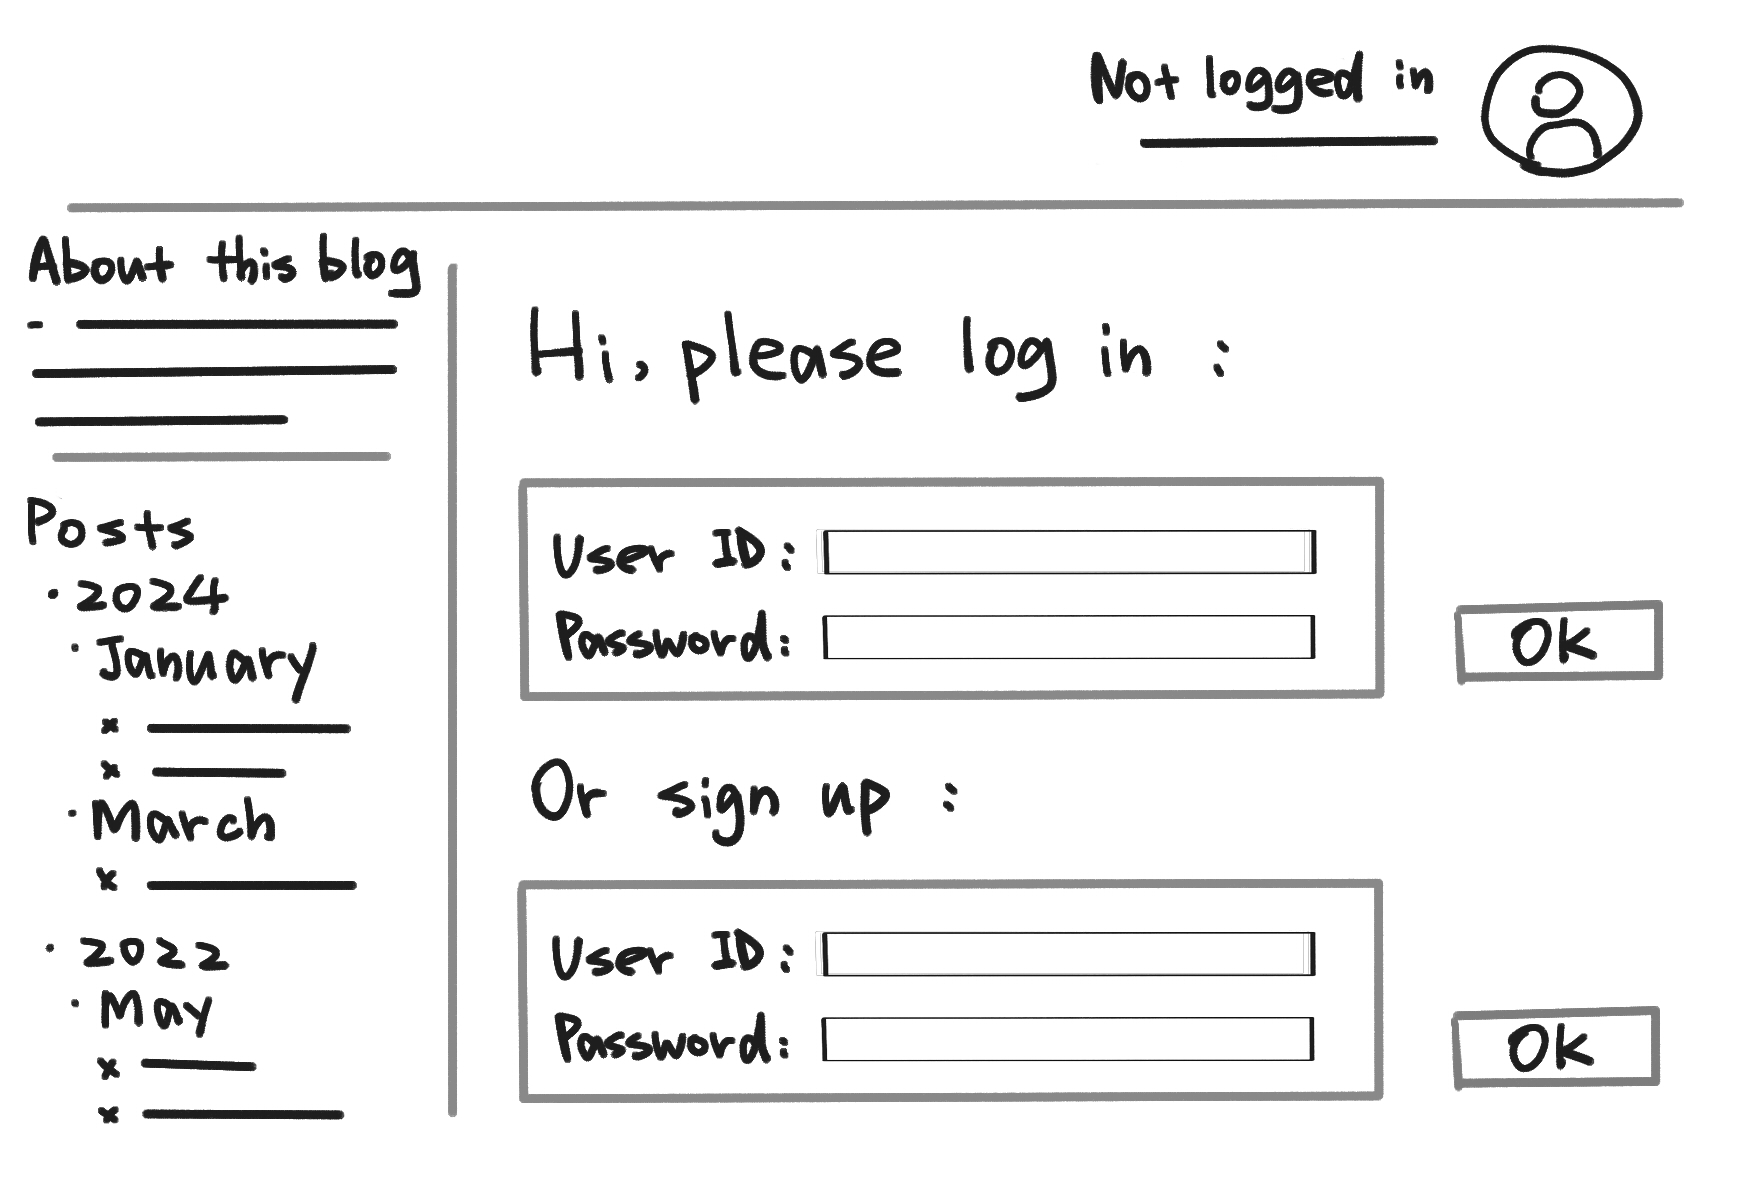 Not logged in
About this blog
Posts
· 2024
· January
x
x
· March
x
· 2022
· May
x
x
Hi, please log in :
User ID:
Password:
OK
Or sign up :
User ID:
Password:
OK